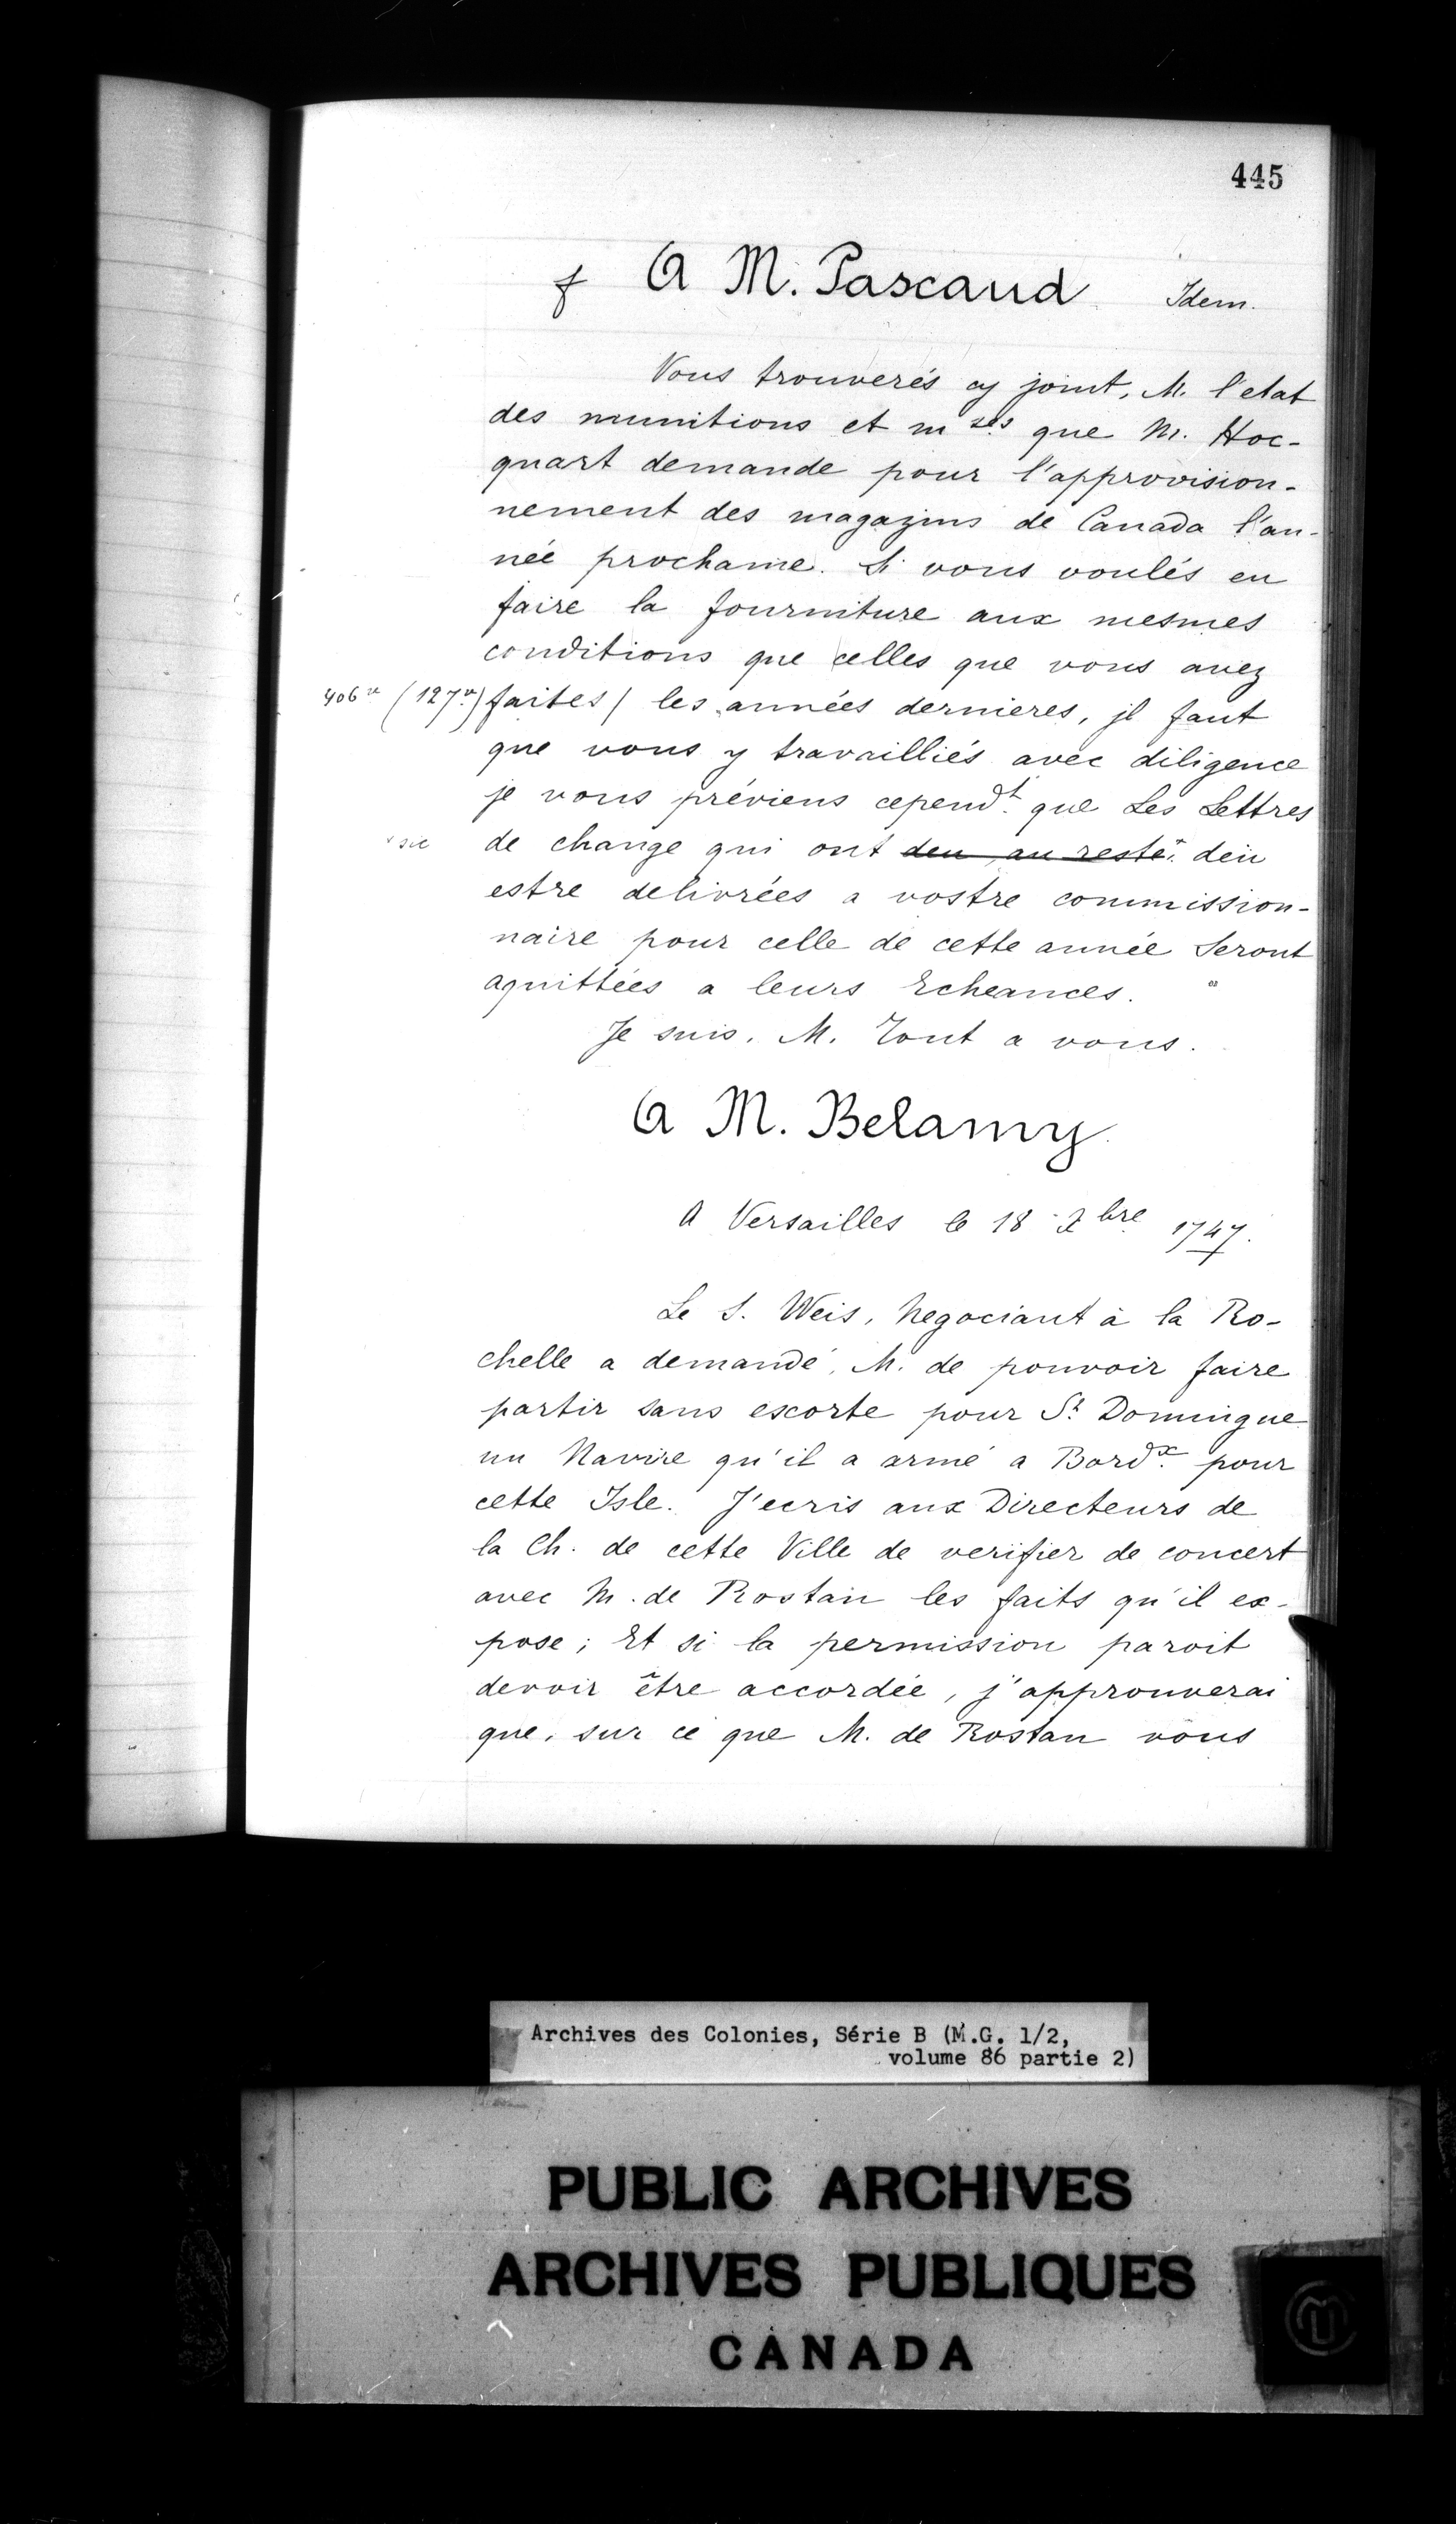 445
f A M. Pascaud Idem.
Vous trouverés cy joint, M. l'etat
des munitions et m ses que M. Hoc-
quart demande pour l'approvision-
nement des magazins de Canada l'an-
née prochaine. Si vous voulés en
faire la fourniture aux mesmes
conditions que celles que vous avez
406 vo (127 vo) faites / les années dernieres, jl faut
que vous y travailliés avec diligence
je vous préviens cependt. que Les Lettres
x sic de change qui ont deu au reste x deü
estre delivrées a vostre commission-
naire pour celle de cette année Seront
aquittées a leurs Echeances.
Je suis, M. Tout a vous.
A M. Belamy
A Versailles le 18 Xbre 1747.
Le S. Weis, Negociant à la Ro-
chelle a demandé, M. de pouvoir faire
partir sans escorte pour St. Domingue
un Navire qu'il a armé a Bordx. pour
cette Isle. J'ecris aux Directeurs de
la Ch. de cette Ville de verifier de concert
avec M. de Rostan les faits qu'il ex-
pose; Et si la permission paroit
devoir être accordée, j'approuverai
que, sur ce que M. de Rostan vous
Archives des Colonies, Série B (M.G. 1/2,
volume 86 partie 2)
PUBLIC ARCHIVES
ARCHIVES PUBLIQUES
CANADA